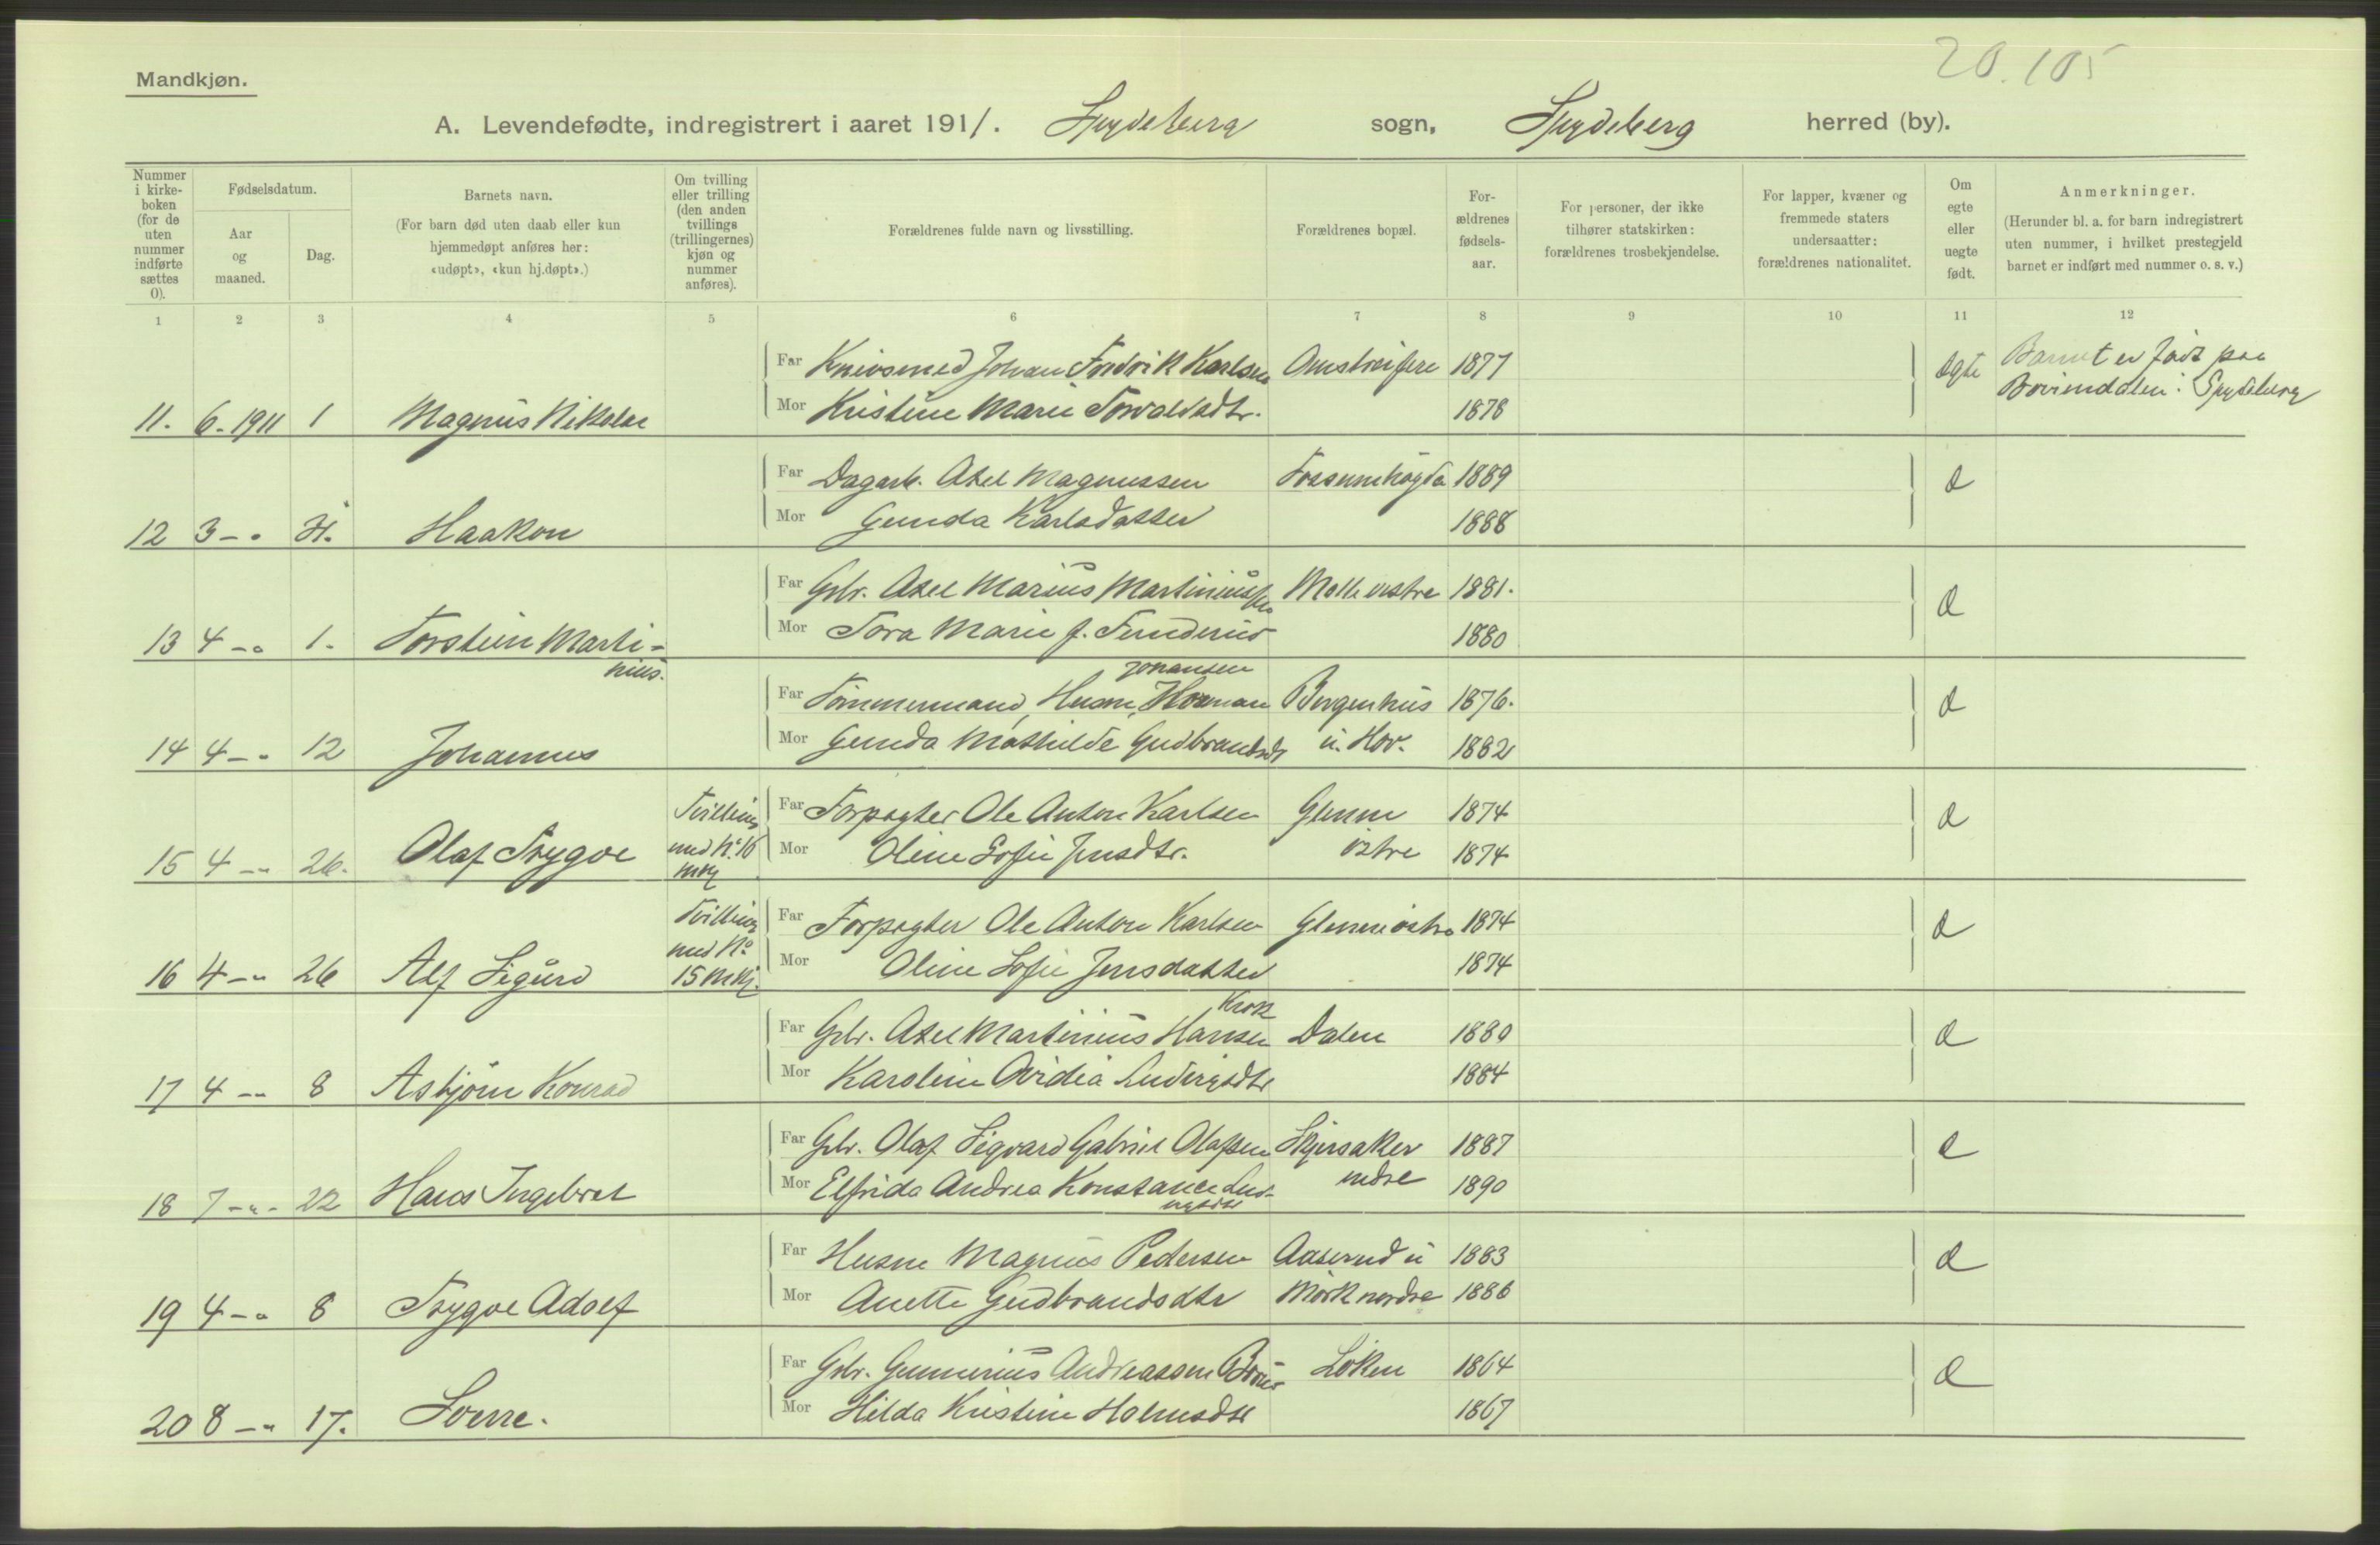 20.105
Mandkjøn.
A. Levendefødte, indregistrert i aaret 1911. Spydeberg sogn, Spydeberg herred (by).
Nummer i kirkeboken (for de uten nummer indførte sættes 0).
Fødselsdatum.
Aar og maaned.
Dag.
Barnets navn.
(For barn død uten daab eller kun hjemmedøpt anføres her: «udøpt», «kun hj.døpt».)
Om tvilling eller trilling (den anden tvillings (trillingernes) kjøn og nummer anføres).
Forældrenes fulde navn og livsstilling.
Forældrenes bopæl.
Forældrenes fødselsaar.
For personer, der ikke tilhører statskirken: forældrenes trosbekjendelse.
For lapper, kvæner og fremmede staters undersaatter: forældrenes nationalitet.
Om egte eller uegte født.
Anmerkninger.
(Herunder bl. a. for barn indregistrert uten nummer, i hvilket prestegjeld barnet er indført med nummer o. s. v.)
1 2 3 4 5 6 7 8 9 10 11 12
Far Knivsmed Johan Fredrik Karlsen 1877 Ægte Barnet er født paa
Spydeberg
11. 6.-1911 1 Magnus Nikolai Mor Kristine Marie Torvaldsdtr. 1878
Far Dagarb. Axel Magnussen Fossumhøgda 1889 d
12 3 -"- Haakon Mor Gunda Karlsdatter 1888
Far Gbr. Axel Marius Martiniussen Molle vestre 1881. d
13 4 -"- 1. Torstein Marti-
nius. Mor Tora Marie f. Funderud 1880
Johansen
Far Tømmermand, Husm. Herman Bergenhus 1876. d
14 4 -"- 12 Johannes Mor Gunda Mathilde Gudbrandsdt u. Hov. 1882
Tvilling Far Forpagter Ole Anton Karlsen Glenne 1874 d
15 4 -"- 26. Olaf Trygve med No. 16 Mor Oline Sofie Jensdtr. østre 1874
mkj
Tvilling Far Forpagter Ole Anton Karlsen Glenne østre 1874 d
med No
16 4 -"- 26 Alf Sigurd 15 mkj. Mor Oline Sofie Jensdatter 1874
Krok
Far Gbr. Axel Martinius Hansen Dalen 1880 d
17 4 -"- 8 Asbjørn Konrad Mor Karoline Ovidia Ludvigsdtr 1884
Far Gbr. Olaf Sigvard Gabriel Olafsen Skjersaker 1887 d
18 7 -"- 22 Hans Ingebret Mor Elfrida Andrea Konstance Lud-
vigsdtr nedre 1890
Far Husm Magnus Pedersen Aaserud u 1883 d
19 4 -"- 8 Trygve Adolf Mor Anette Gudbrandsdtr Mørk nordre 1886
Far Gbr. Gunnerius Andreassen Løken 1864 d
20 8 -"- 17. Sverre. Mor Hilda Kristine Holmsdtr 1867